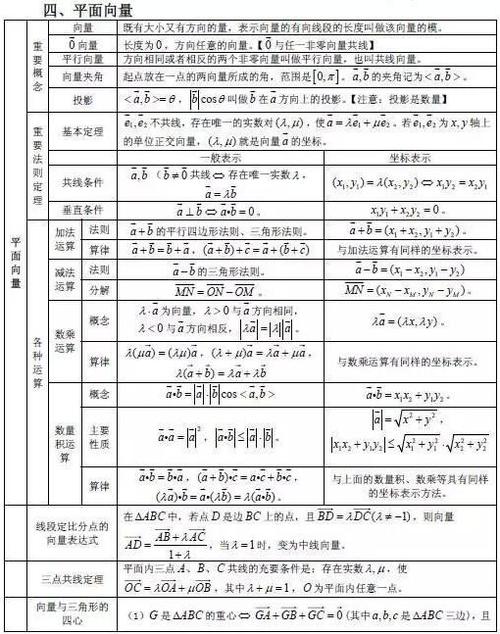 四、平面向量
平面向量
重要概念
向量
既有大小又有方向的量，表示向量的有向线段的长度叫做该向量的模。
0⃗ 向量
长度为 0，方向任意的向量。【0⃗ 与任一非零向量共线】
平行向量
方向相同或者相反的两个非零向量叫做平行向量，也叫共线向量。
向量夹角
起点放在一点的两向量所成的角，范围是[0,π]。a⃗,b⃗ 的夹角记为<a⃗,b⃗>。
投影
<a⃗,b⃗>=θ，|b⃗|cosθ 叫做 b⃗ 在 a⃗ 方向上的投影。【注意：投影是数量】
重要法则定理
基本定理
e⃗₁,e⃗₂ 不共线，存在唯一的实数对(λ,μ)，使 a⃗=λe⃗₁+μe⃗₂。若 e⃗₁,e⃗₂ 为 x,y 轴上
的单位正交向量，(λ,μ) 就是向量 a⃗ 的坐标。
一般表示
坐标表示
共线条件
a⃗,b⃗（b⃗≠0⃗ 共线⇔存在唯一实数 λ，
a⃗=λb⃗
(x₁,y₁)=λ(x₂,y₂)⇔x₁y₂=x₂y₁
垂直条件
a⃗⊥b⃗⇔a⃗•b⃗=0。
x₁y₁+x₂y₂=0。
各种运算
加法运算
法则
a⃗+b⃗ 的平行四边形法则、三角形法则。
a⃗+b⃗=(x₁+x₂,y₁+y₂)。
算律
a⃗+b⃗=b⃗+a⃗，(a⃗+b⃗)+c⃗=a⃗+(b⃗+c⃗)
与加法运算有同样的坐标表示。
减法运算
法则
a⃗−b⃗ 的三角形法则。
a⃗−b⃗=(x₁−x₂,y₁−y₂)
分解
MN⃗=ON⃗−OM⃗。
MN⃗=(x_N−x_M,y_N−y_M)。
数乘运算
概念
λ·a⃗ 为向量，λ>0 与 a⃗ 方向相同，
λ<0 与 a⃗ 方向相反，|λa⃗|=|λ||a⃗|。
λa⃗=(λx,λy)。
算律
λ(μa⃗)=(λμ)a⃗，(λ+μ)a⃗=λa⃗+μa⃗，
λ(a⃗+b⃗)=λa⃗+λb⃗
与数乘运算有同样的坐标表示。
数量积运算
概念
a⃗•b⃗=|a⃗|·|b⃗|cos<a⃗,b⃗>
a⃗•b⃗=x₁x₂+y₁y₂。
主要性质
a⃗•a⃗=|a⃗|²，|a⃗•b⃗|≤|a⃗|·|b⃗|。
|a⃗|=√(x²+y²)，
|x₁x₂+y₁y₂|≤√(x₁²+y₁²)·√(x₂²+y₂²)
算律
a⃗•b⃗=b⃗•a⃗，(a⃗+b⃗)•c⃗=a⃗•c⃗+b⃗•c⃗，
(λa⃗)•b⃗=a⃗•(λb⃗)=λ(a⃗•b⃗)。
与上面的数量积、数乘等具有同样
的坐标表示方法。
线段定比分点的
向量表达式
在ΔABC 中，若点 D 是边 BC 上的点，且 BD⃗=λDC⃗(λ≠−1)，则向量
AD⃗=(AB⃗+λAC⃗)/(1+λ)，当 λ=1 时，变为中线向量。
三点共线定理
平面内三点 A、B、C 共线的充要条件是：存在实数 λ,μ，使
OC⃗=λOA⃗+μOB⃗，其中 λ+μ=1，O 为平面内任意一点。
向量与三角形的
四心
（1）G 是ΔABC 的重心⇔GA⃗+GB⃗+GC⃗=0⃗ (其中 a,b,c 是ΔABC 三边)，且